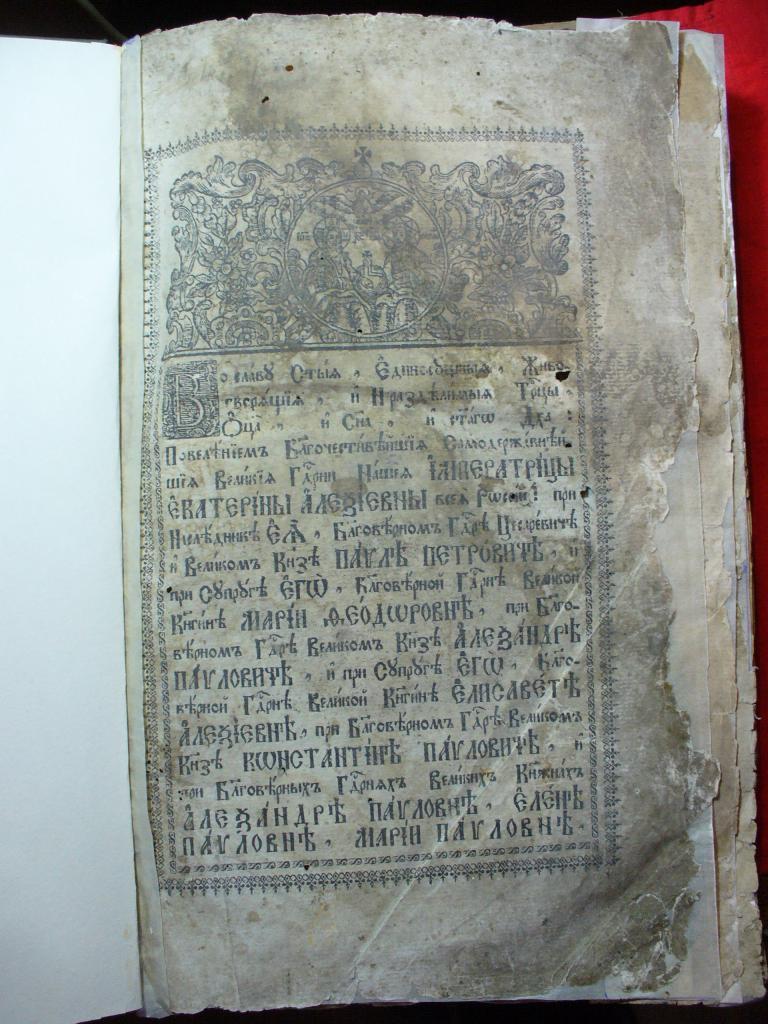 Во славу Ст҃ыѧ, Єдиносꙋщныѧ, Живо-
творѧщїѧ, и Нераздѣлимыѧ Трⷪ҇цы,
Ѻ҆ц҃а, и Сн҃а, и ст҃а́гѡ Дх҃а:
Повелѣнїемъ Благочестивѣйшїѧ Самодержавнѣй-
шїѧ Великїѧ Гдⷭ҇рни Нашеѧ І҆МПЕРАТРИ́ЦЫ
Є҆КАТЕРИ́НЫ А҆ЛЕѮІ́ЕВНЫ всеѧ Рѡссі́и: при
Наслѣдникѣ Є҆Ѧ̀, Благовѣрномъ Гдⷭ҇рѣ Цесаревичѣ
и Великомъ Кнз҃ѣ ПА́ѴЛѢ ПЕТРО́ВИЧѢ, и
при Сꙋпрꙋгѣ Є҆ГѠ̀, Благовѣрной Гдⷭ҇рнѣ Великой
Кнг҃и́нѣ МАРІ́И Ѳ҆ЕОДѠРОВНѢ, при Благо-
вѣрномъ Гдⷭ҇рѣ Великомъ Кнз҃ѣ А҆ЛЕѮА́НДРѢ
ПА́ѴЛОВИЧѢ, и при Сꙋпрꙋгѣ Є҆ГѠ̀, Благо-
вѣрной Гдⷭ҇рнѣ Великой Кнг҃инѣ Є҆ЛИСАВЕ́ТѢ
А҆ЛЕѮІ́ЕВНѢ, при Благовѣрномъ Гдⷭ҇рѣ Великомъ
Кнз҃ѣ КѠНСТАНТІ́НѢ ПА́ѴЛОВИЧѢ, и
при Благовѣрныхъ Гдⷭ҇рнѧхъ Великихъ Кнѧжнахъ
А҆ЛЕѮА́НДРѢ ПА́ѴЛОВНѢ, Є҆ЛЕ́НѢ
ПА́ѴЛОВНѢ, МАРІ́И ПА́ѴЛОВНѢ,